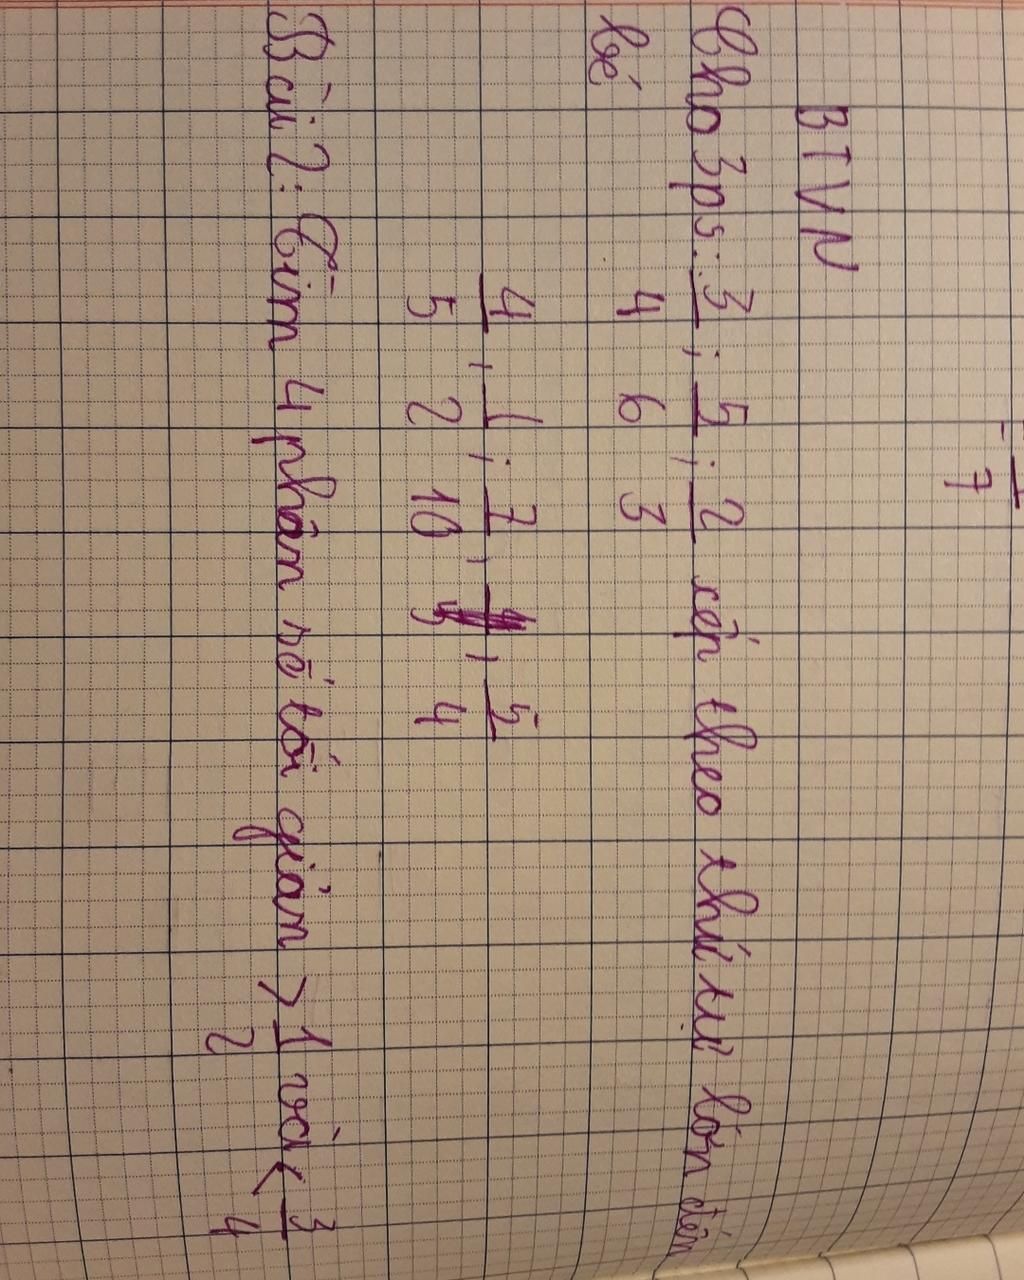 7
BTVN
Cho 3ps: 3/4 ; 5/6 ; 2/3 xếp theo thứ tự lớn đến
bé
4/5 , 1/2 ; 7/10 , , 5/4
Bài 2: Tìm 4 phân số tối giản > 1/2 và < 3/4